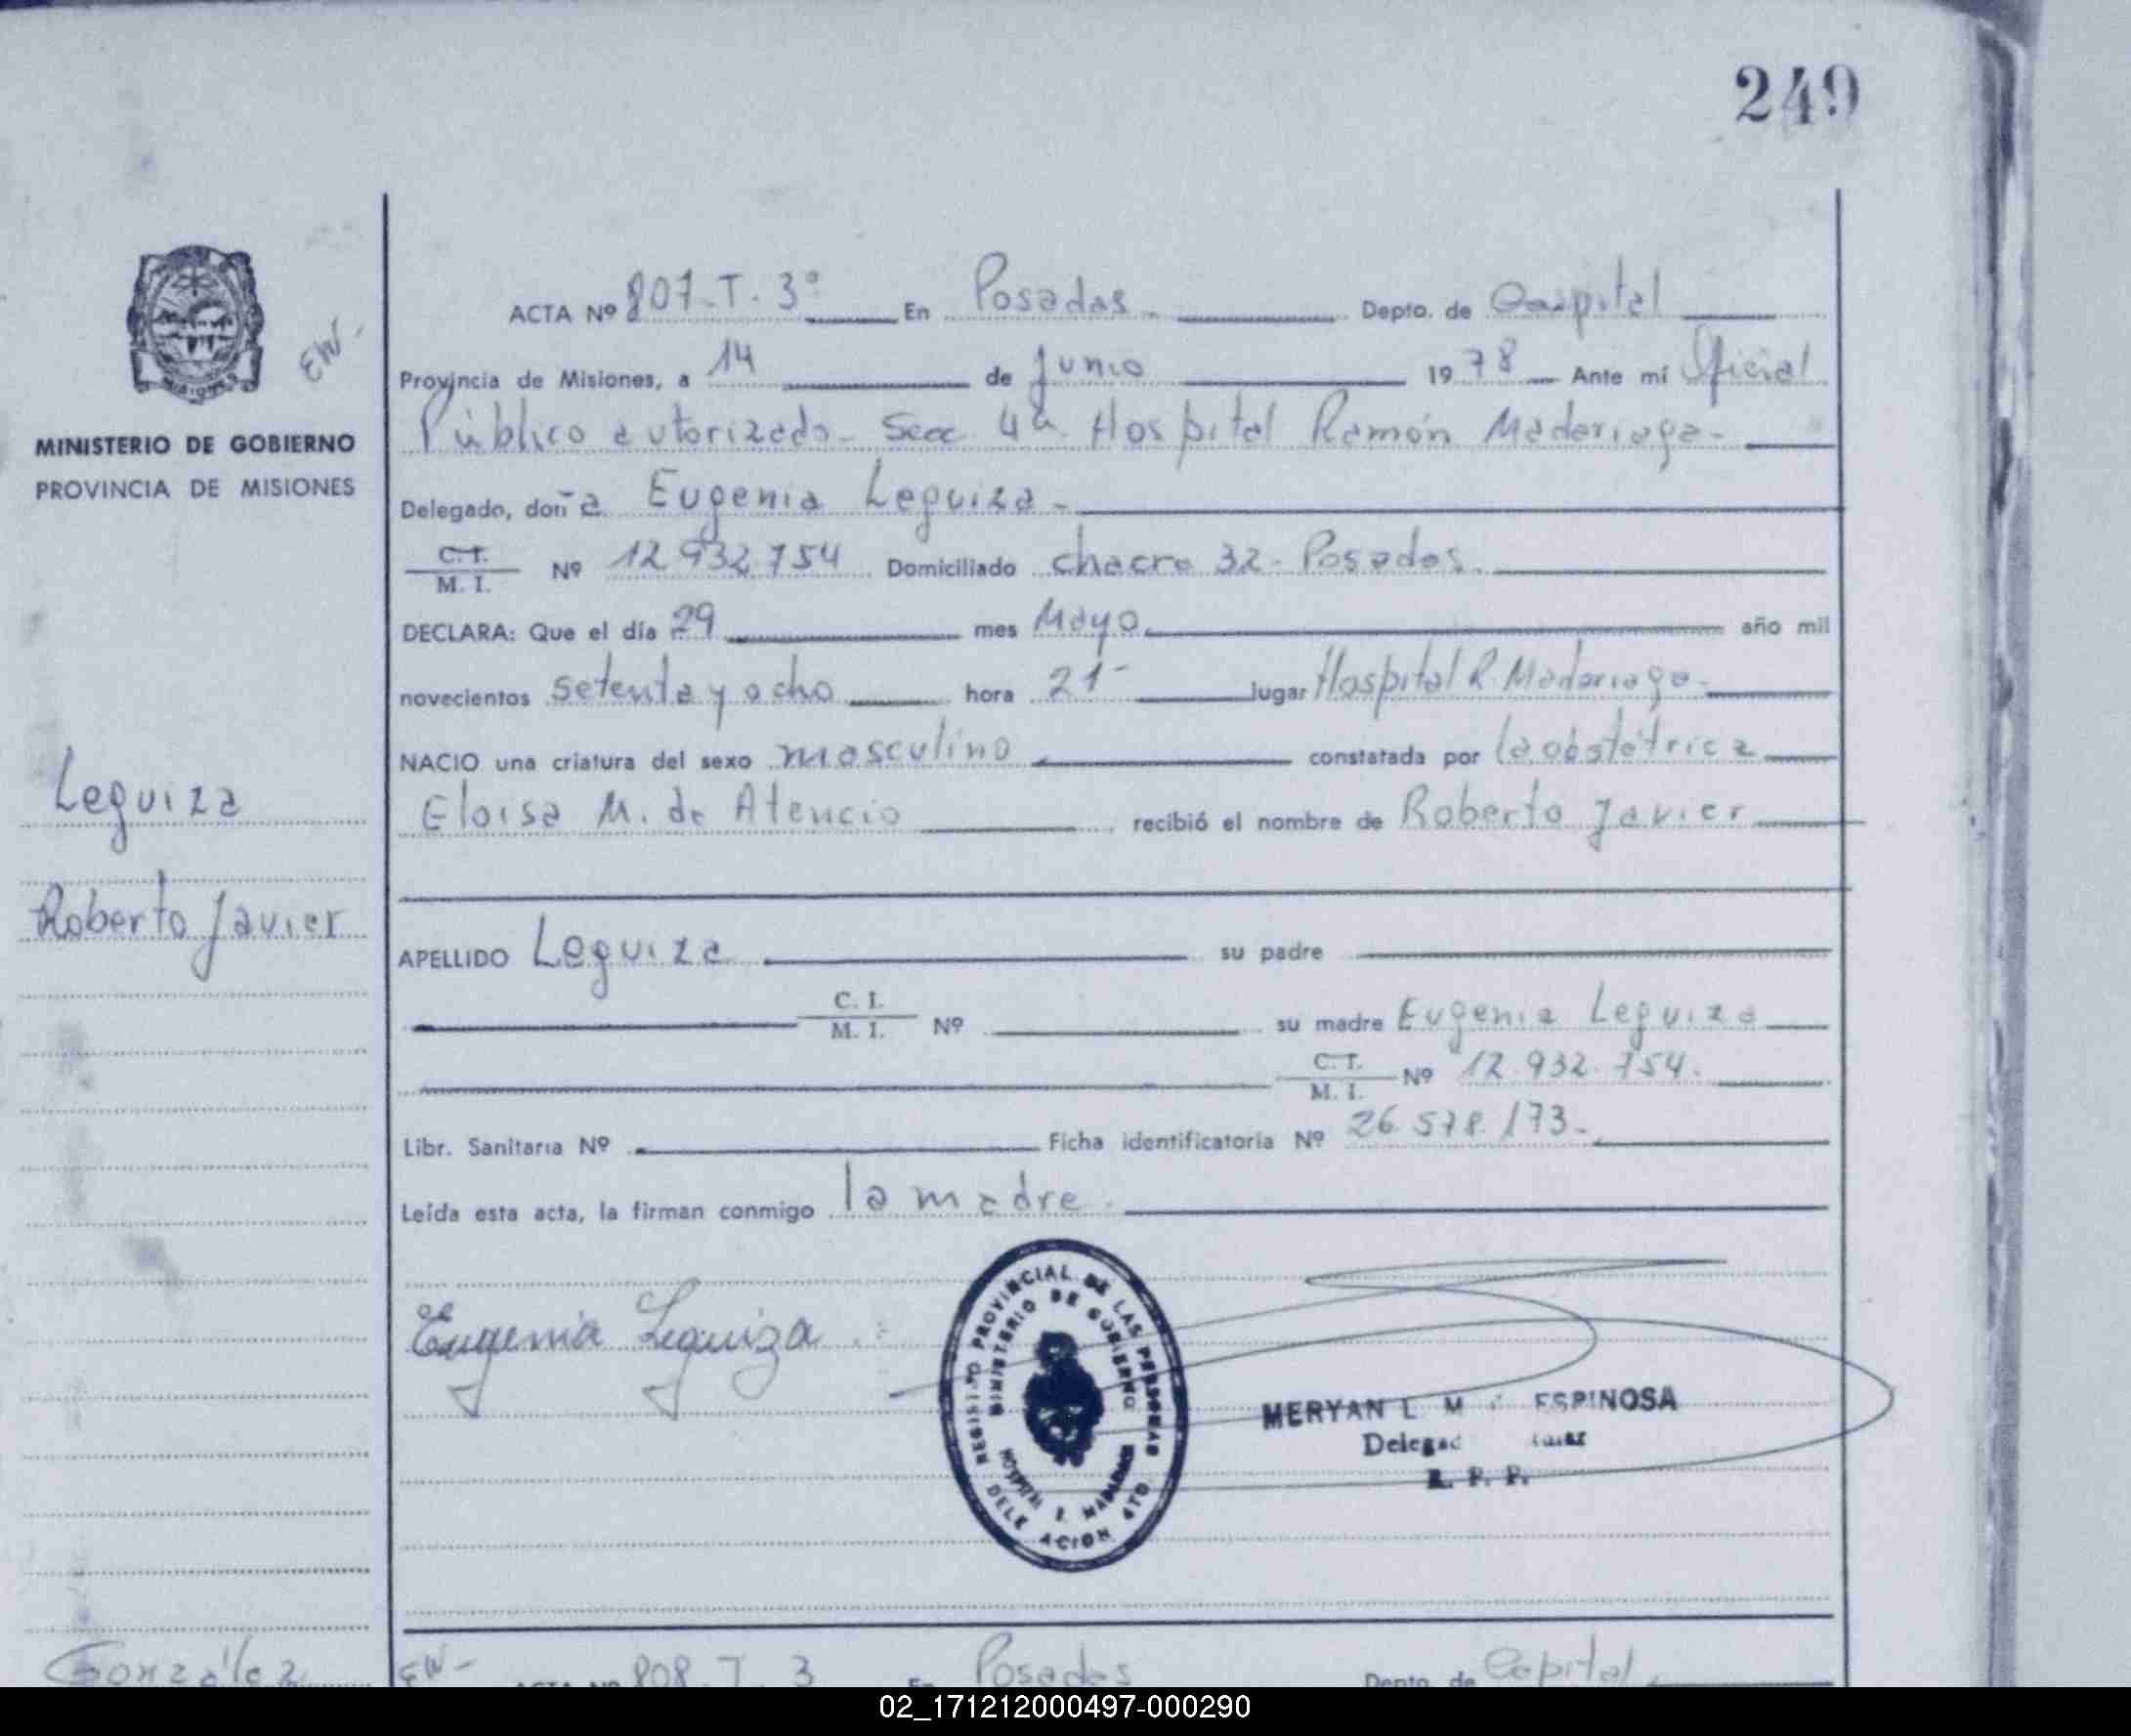 249
EW-
MINISTERIO DE GOBIERNO
PROVINCIA DE MISIONES
Leguiza
Roberto Javier
ACTA Nº 807-T. 3º En Posadas. Depto. de Capital
Provincia de Misiones, a 14 de Junio 1978 Ante mí Oficial
Público autorizado- Secc 4ª Hospital Ramón Madariaga-
Delegado, doña Eugenia Leguiza-
C.I. / M. I. Nº 12 932 754 Domiciliado chacra 32- Posadas.
DECLARA: Que el día 29 mes Mayo año mil
novecientos setenta y ocho hora 21- lugar Hospital R. Madariaga-
NACIO una criatura del sexo masculino constatada por la obstétrica
Eloisa M. de Atencio recibió el nombre de Roberto Javier
APELLIDO Leguiza su padre
C. I. / M. I. Nº su madre Eugenia Leguiza
C.I. / M. I. Nº 12.932.754.
Libr. Sanitaria Nº Ficha identificatoria Nº 26.578/73-
Leída esta acta, la firman conmigo la madre.
Eugenia Leguiza
REGISTRO PROVINCIAL DE LAS PERSONAS
MINISTERIO DE GOBIERNO
MERYAN L M ESPINOSA
R. P. P.
González EW-
ACTA Nº 808 T 3 En Posadas Depto. de Capital
02_171212000497-000290